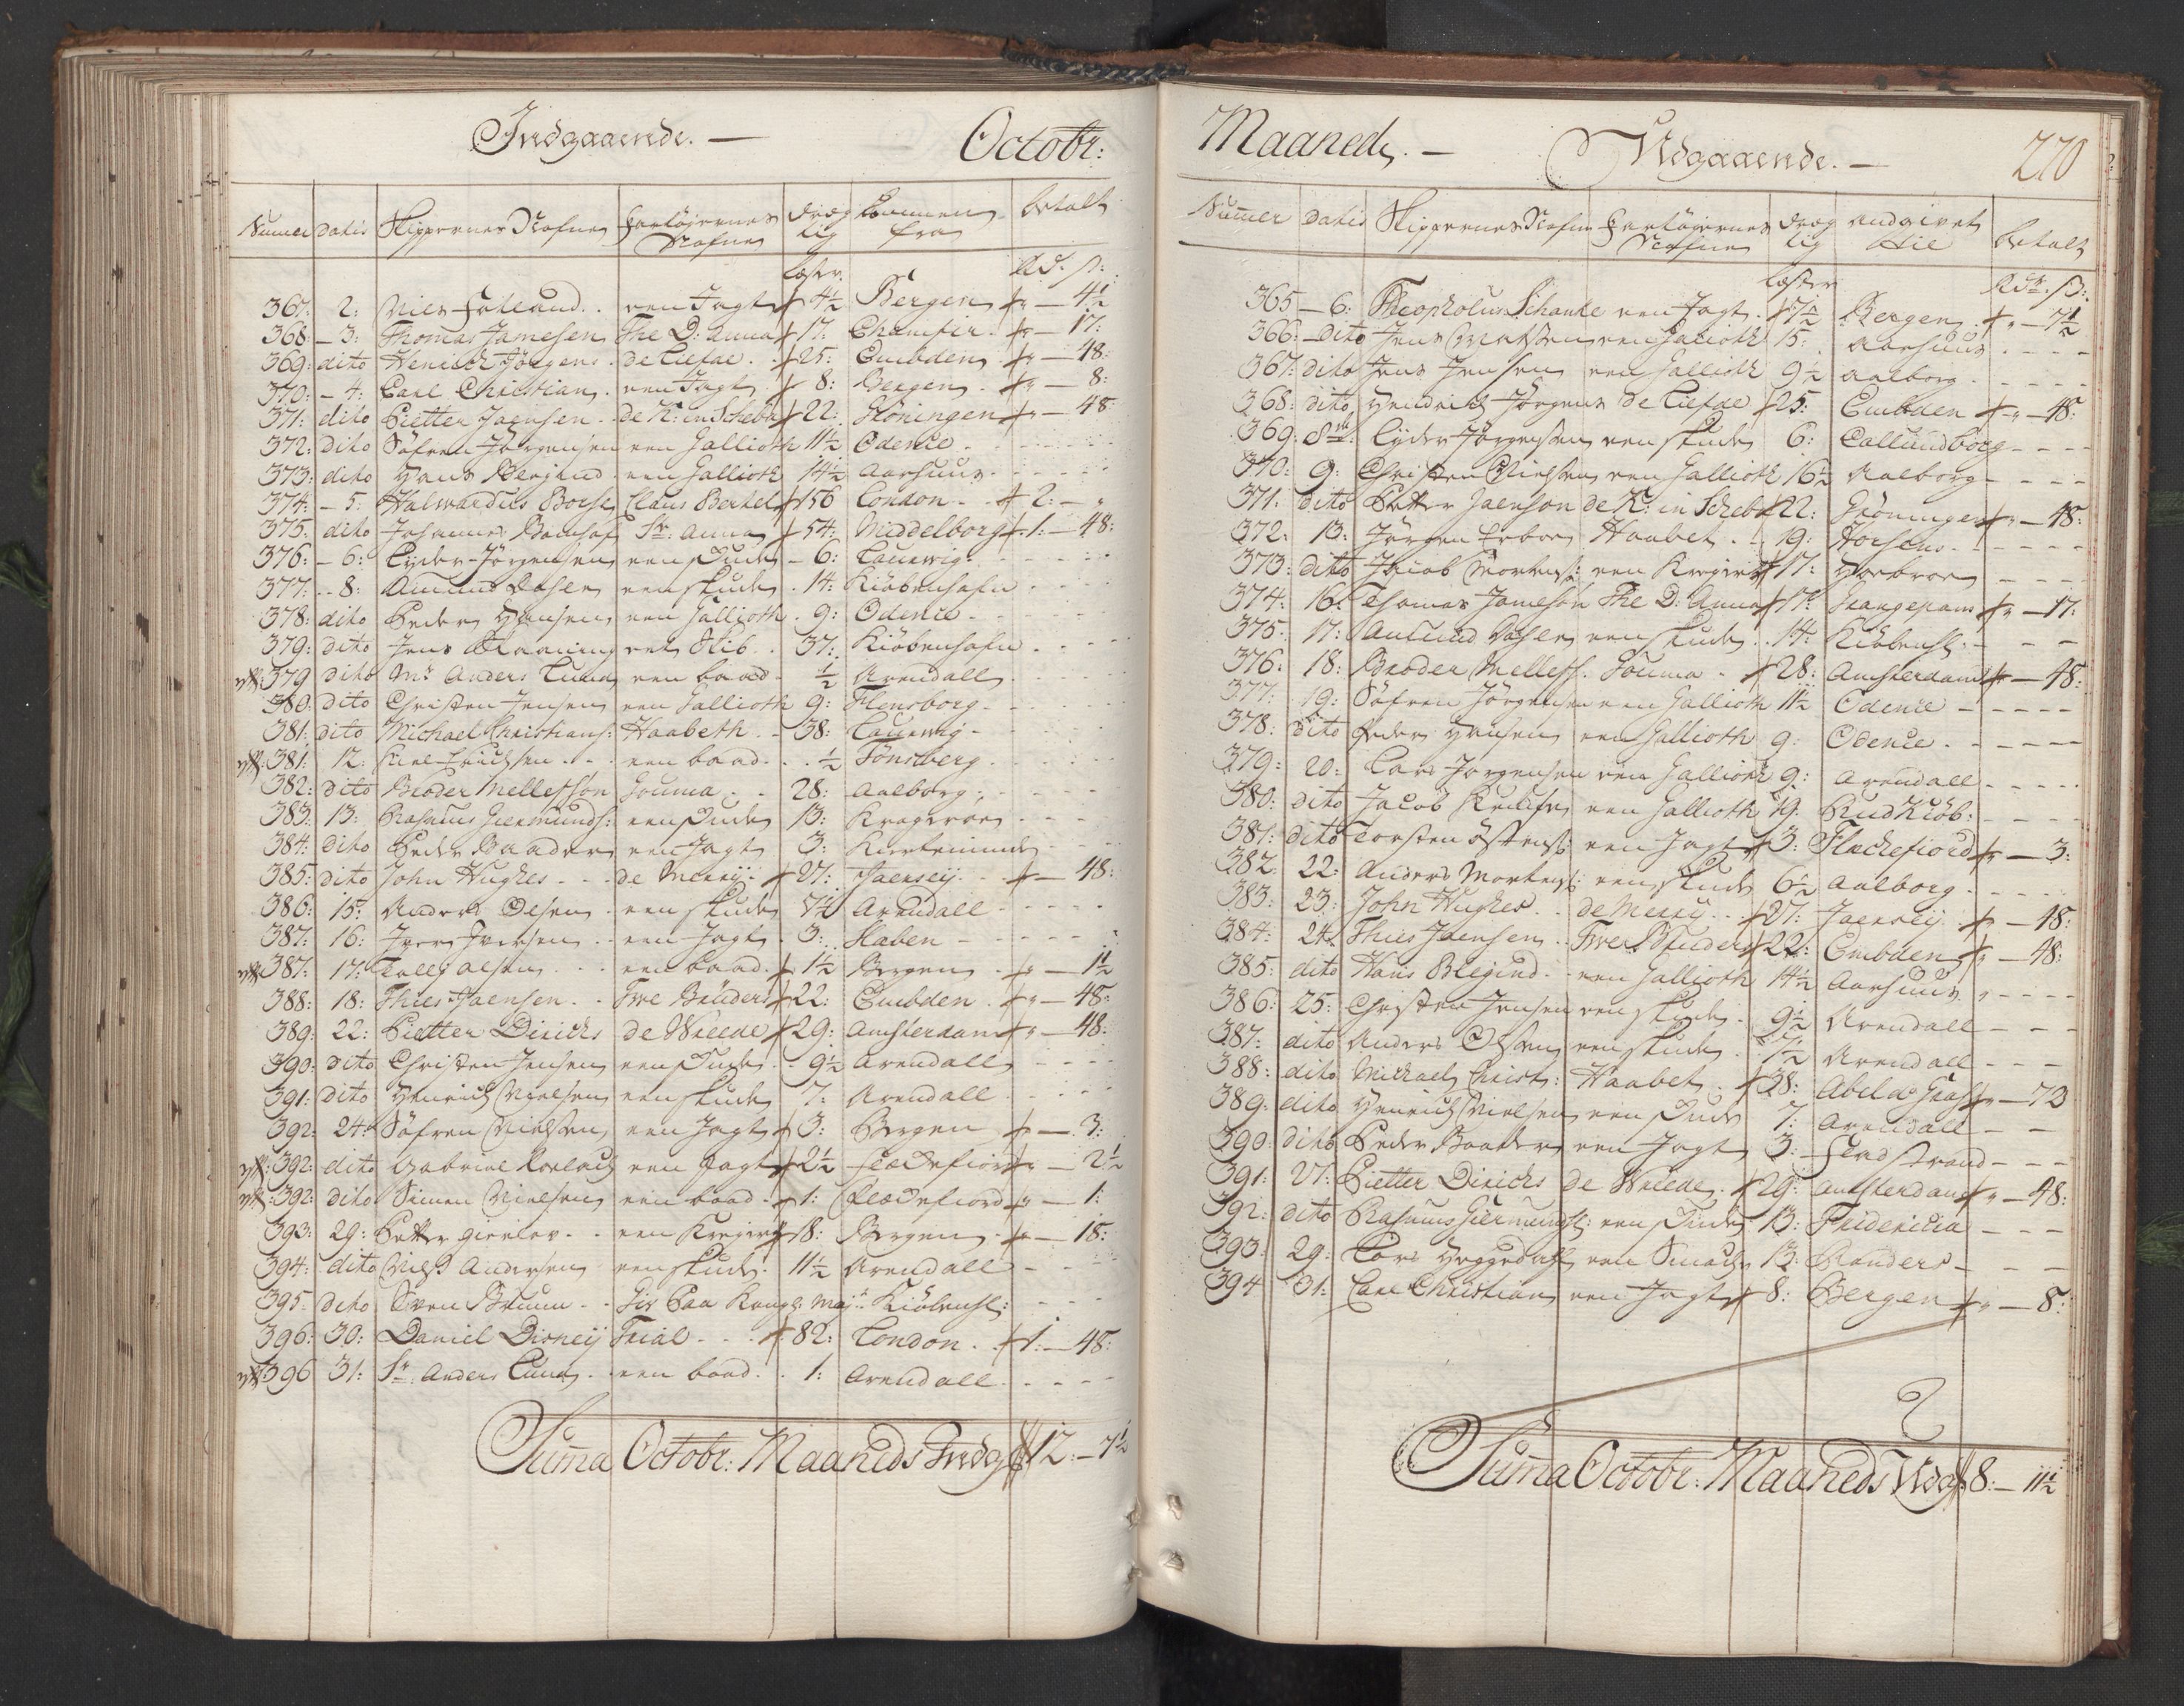 Indgaaende. — Octobr:
Numer Datis Skippernes Nafne Fartöjernes Nafne Dræglig Kommen fra betalt
Læster. Rd. ß:
367: 2: Niels een Jagt 4½ Bergen " — 4½
368 — 3: Thomas Jamesen The D: Anna 17: " — 17:
369: dito Henrich Jörgens. de Liefde 25: Embden " — 48:
370: — 4: Carl Christian. een Jagt 8: Bergen " — 8:
371: dito Pietter Jaensen. de K: in Scheba 22: Gröningen " — 48
372: dito Söfren Jörgensen een Gallioth 11½ Odence - - -
373: dito Hans Blegind een Gallioth 14½ Aarhuus. - - -
374: — 5: Halwardus Borse Claus Bertels 156 London - 2: — "
375. dito Johannes Sr: Anna 54: Middelborg 1: — 48:
376: — 6: Lyder Jörgensen een Skude — 6: Laurwig. - - -
377: — 8: Amund Olsen een Skude 14: Kiöbenhafn
378: dito Peder Hansen een Gallioth 9: Odence
379: dito Jens et Skib 37: Kiöbenhafn - - -
379 dito Mr Anders Luna een baad ½ Arendall
380: dito Christen Jensen een Gallioth 9: Flensborg - - -
381: dito Michael Christians: Haabeth 38: Laurwig - - -
381: 12: Erichsen een baad ½ Tönsberg
382: dito Broder Mellefsön Gouma 28: Aalborg - - -
383: 13: Rasmus Giermunds: een Skude 13: Krageröe
384: dito Peder Baader een Jagt 3: Kierteminde
385: dito John Hughes de Merrij 27: Jaerseij — 48:
386: 15: Anders Olsen een Skude 7½ Arendall - - -
387: 16: Iver Iversen een Jagt 3: Skaben - - -
387: 17: Tolleg Olsen een baad 1½ Bergen " — 1½
388: 18: Thies Jaensen Twe Brüders 22: Embden " — 48:
389: 22: Pietter Dirichs de Wreede 29: Amsterdam " — 48:
390: dito Christen Jensen een Skude 9½ Arendall - - -
391: dito Henrich Nielsen een Skude 7: Arendall - - -
392: 24: Söfren Nielsen een Jagt 3: Bergen — 3:
392: dito Gabriel een Jagt 2½ Fleckefiord " — 2½
392: dito Simen Nielsen een baad 1: Fleckefiord " — 1:
393: 29: Petter een Kreijert 18: Bergen " — 18:
394: dito Niels Andersen een Skude 11½ Arendall - - -
395. dito Sven Bruun Kongl: Maj: Kiöbenh: - - -
396: 30: Daniel Disneij Trial 82: London 1: — 48:
396 31: Sr: Anders Luna een baad 1: Arendall - - -
Suma Octobr: Maaneds Indg: 12: — 7½
Maaneds. — Udgaaende. — 270
Numer Datis Skippernes Nafne Fartöjernes Nafne Dræglig Andgivet til betalt
Læster Rdr. ß:
365 — 6: Theopholus Schanke een Jagt 7½ Bergen " — 7½
366: — Dito Jens Madsen een Gallioth 15: Aarhuus - - -
367: dito Jens Jensen een Gallioth 9½ Aalborg - - -
368: dito Hendrich Jörgens de Liefde 25: Embden " — 48:
369: 8de: Lyder Jörgensen een Skude 6: Callundborg - - -
370: 9: Christen Nielsen een Gallioth 16½ Aalborg - - -
371: dito Petter Jaenson de K: in Scheba 22: Gröningen " — 48:
372: 13: Jörgen Haabet 19: Horsens - - -
373: dito Jacob Mortens: een Kreijert 17: Hobroe - - -
374: 16: Thomas Jameson The D: Anna 17: Grangepans " — 17:
375: 17: Amund Olsen een Skude 14: Kiöbenh: - - -
376: 18: Broder Mellefs. Gouma 28: Amsterdam " — 48:
377: 19: Söfren Jörgensen een Gallioth 11½ Odence - - -
378: dito Peder Hansen een Gallioth 9: Odence - - -
379: 20: Lars Jörgensen een Gallioth 9: Arendall - - -
380: dito Jacob een Gallioth 19: Rudkiöb: - - -
381: dito Torsten Östens: een Jagt 3: Fleckefiord " — 3:
382: 22: Anders Mortens: een Skude 6½ Aalborg - - -
383: 23: John Hughes de Merrij 27: Jaerseij " — 48:
384: 24: Thies Jaensen Twe Brüders 22: Embden " — 48:
385: dito Hans Blegind een Gallioth 14½ Aarhuus - - -
386: 25: Christen Jensen een Skude 9½ Arendall - - -
387: dito Anders Olsen een Skude 7½ Arendall - - -
388: dito Michael Christ: Haabet 38: Abel de Gras " — 72
389: dito Henrich Nielsen een Skude 7: Arendall - -
390: dito Peder Baader een Jagt 3: Fladstrand - - -
391: 27: Pietter Dirichs de Wreede 29: Amsterdam " — 48:
392: dito Rasmus Giermunds: een Skude 13: Fridericia - - -
393: 29: Lars een Smack 13: Randers - - -
394 31: Carl Christian een Jagt 8: Bergen " — 8:
Suma Octobr: Maaneds Udg: 8: — 11½